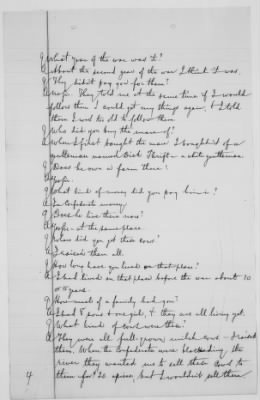 Q What year of the war was it?
A About the second year of the war I think it was.
Q They didn't pay you for them?
A Nope. They told me at the same time if I would
follow them I could get my things again, & I told
them I was too old to follow them.
Q Who did you buy the mare of?
A When I first bought the mare I bought it of a
gentleman named Dick Thrift - a white gentleman.
Q Does he own a farm there?
A Yes.
Q What kind of money did you pay him in?
A In Confederate money.
Q Does he live there now?
A Yes - at the same place.
Q Where did you get these cows?
A I raised them all.
Q How long have you lived on that place?
A I had lived on that place before the war about 10
or 15 years.
Q How much of a family had you?
A I had 8 sons & one girl, & they are all living yet.
Q What kind of cows were these?
A They were all full grown milch cows - I raised
them. When the Confederates were blockading the
river they wanted me to sell these cows to
them for $20 apiece, but I wouldn't sell them
4